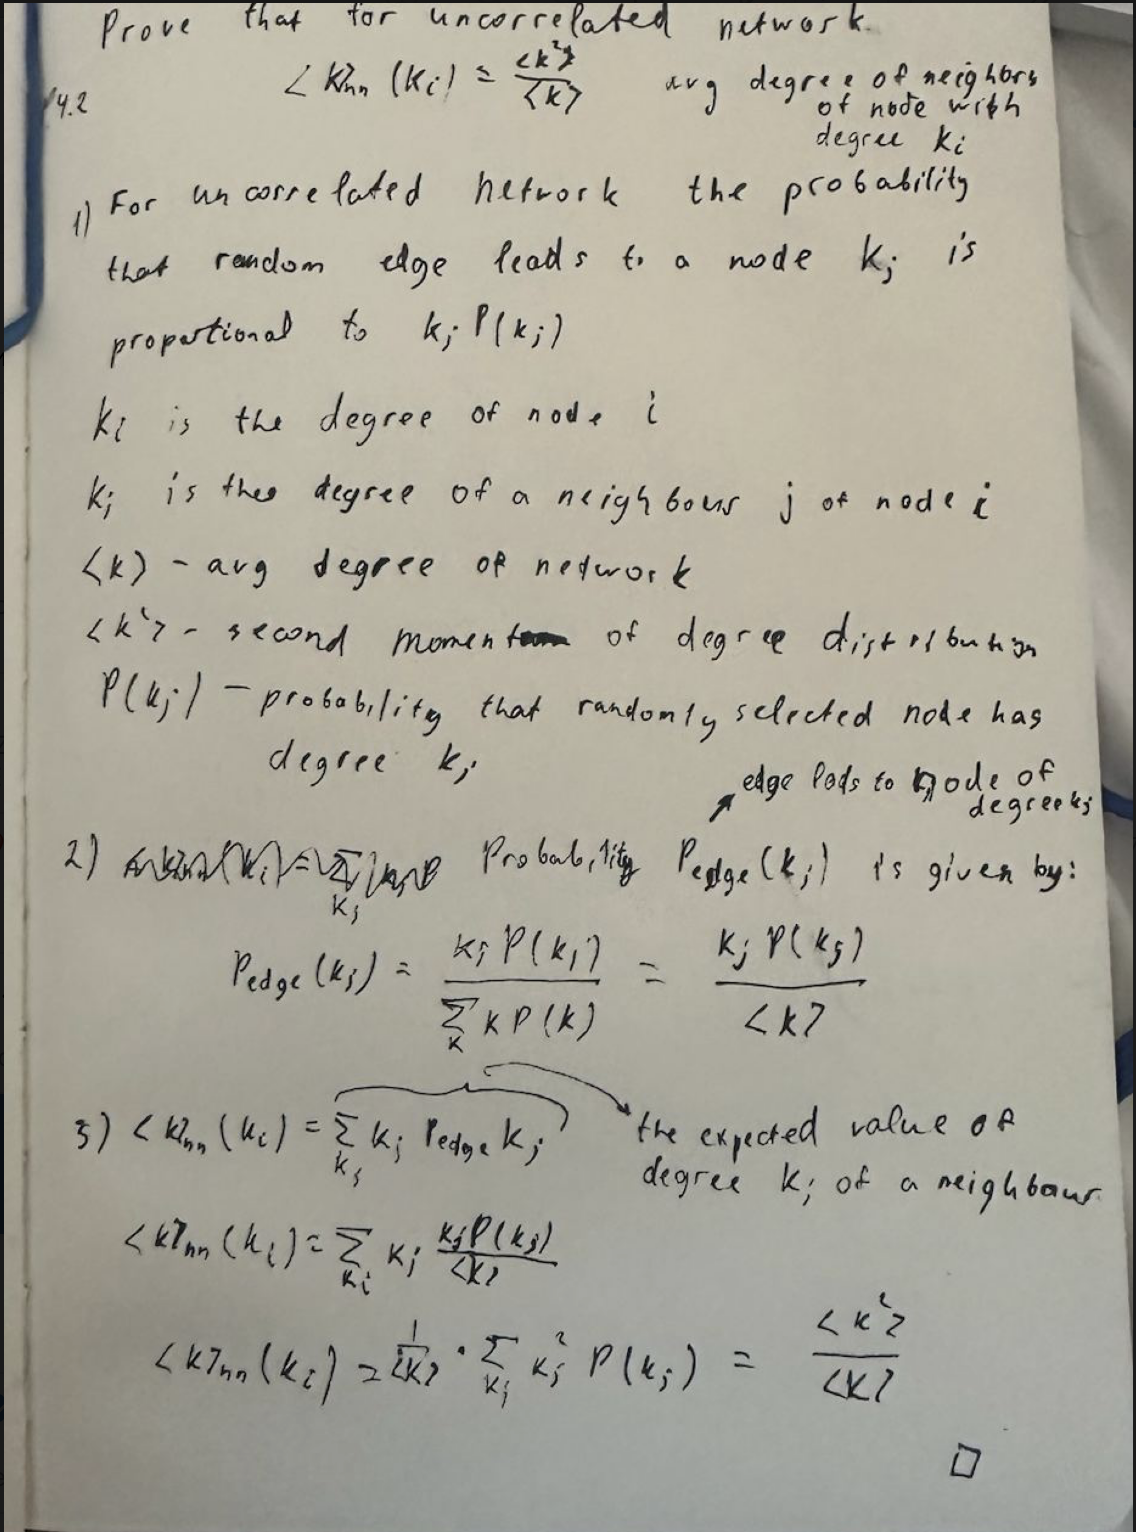 Prove that for uncorrelated network.
4.2
<k>nn (ki) = <k²> / <k> avg degree of neighbors
of node with
degree ki
1) For uncorrelated network the probability
that random edge leads to a node kj is
proportional to kj P(kj)
ki is the degree of node i
kj is the degree of a neighbour j of node i
<k> - avg degree of network
<k²> - second moment of degree distribution
P(kj) - probability that randomly selected node has
degree kj
edge leds to node of
degree kj
2) Probability Pedge(kj) is given by:
Pedge(kj) = kj P(kj) / Σk k P(k) = kj P(kj) / <k>
3) <k>nn (ki) = Σkj kj Pedge kj
the expected value of
degree kj of a neighbour
<k>nn (ki) = Σki kj kj P(kj) / <k>
<k>nn (ki) = 1/<k> · Σkj kj² P(kj) = <k²> / <k>
□